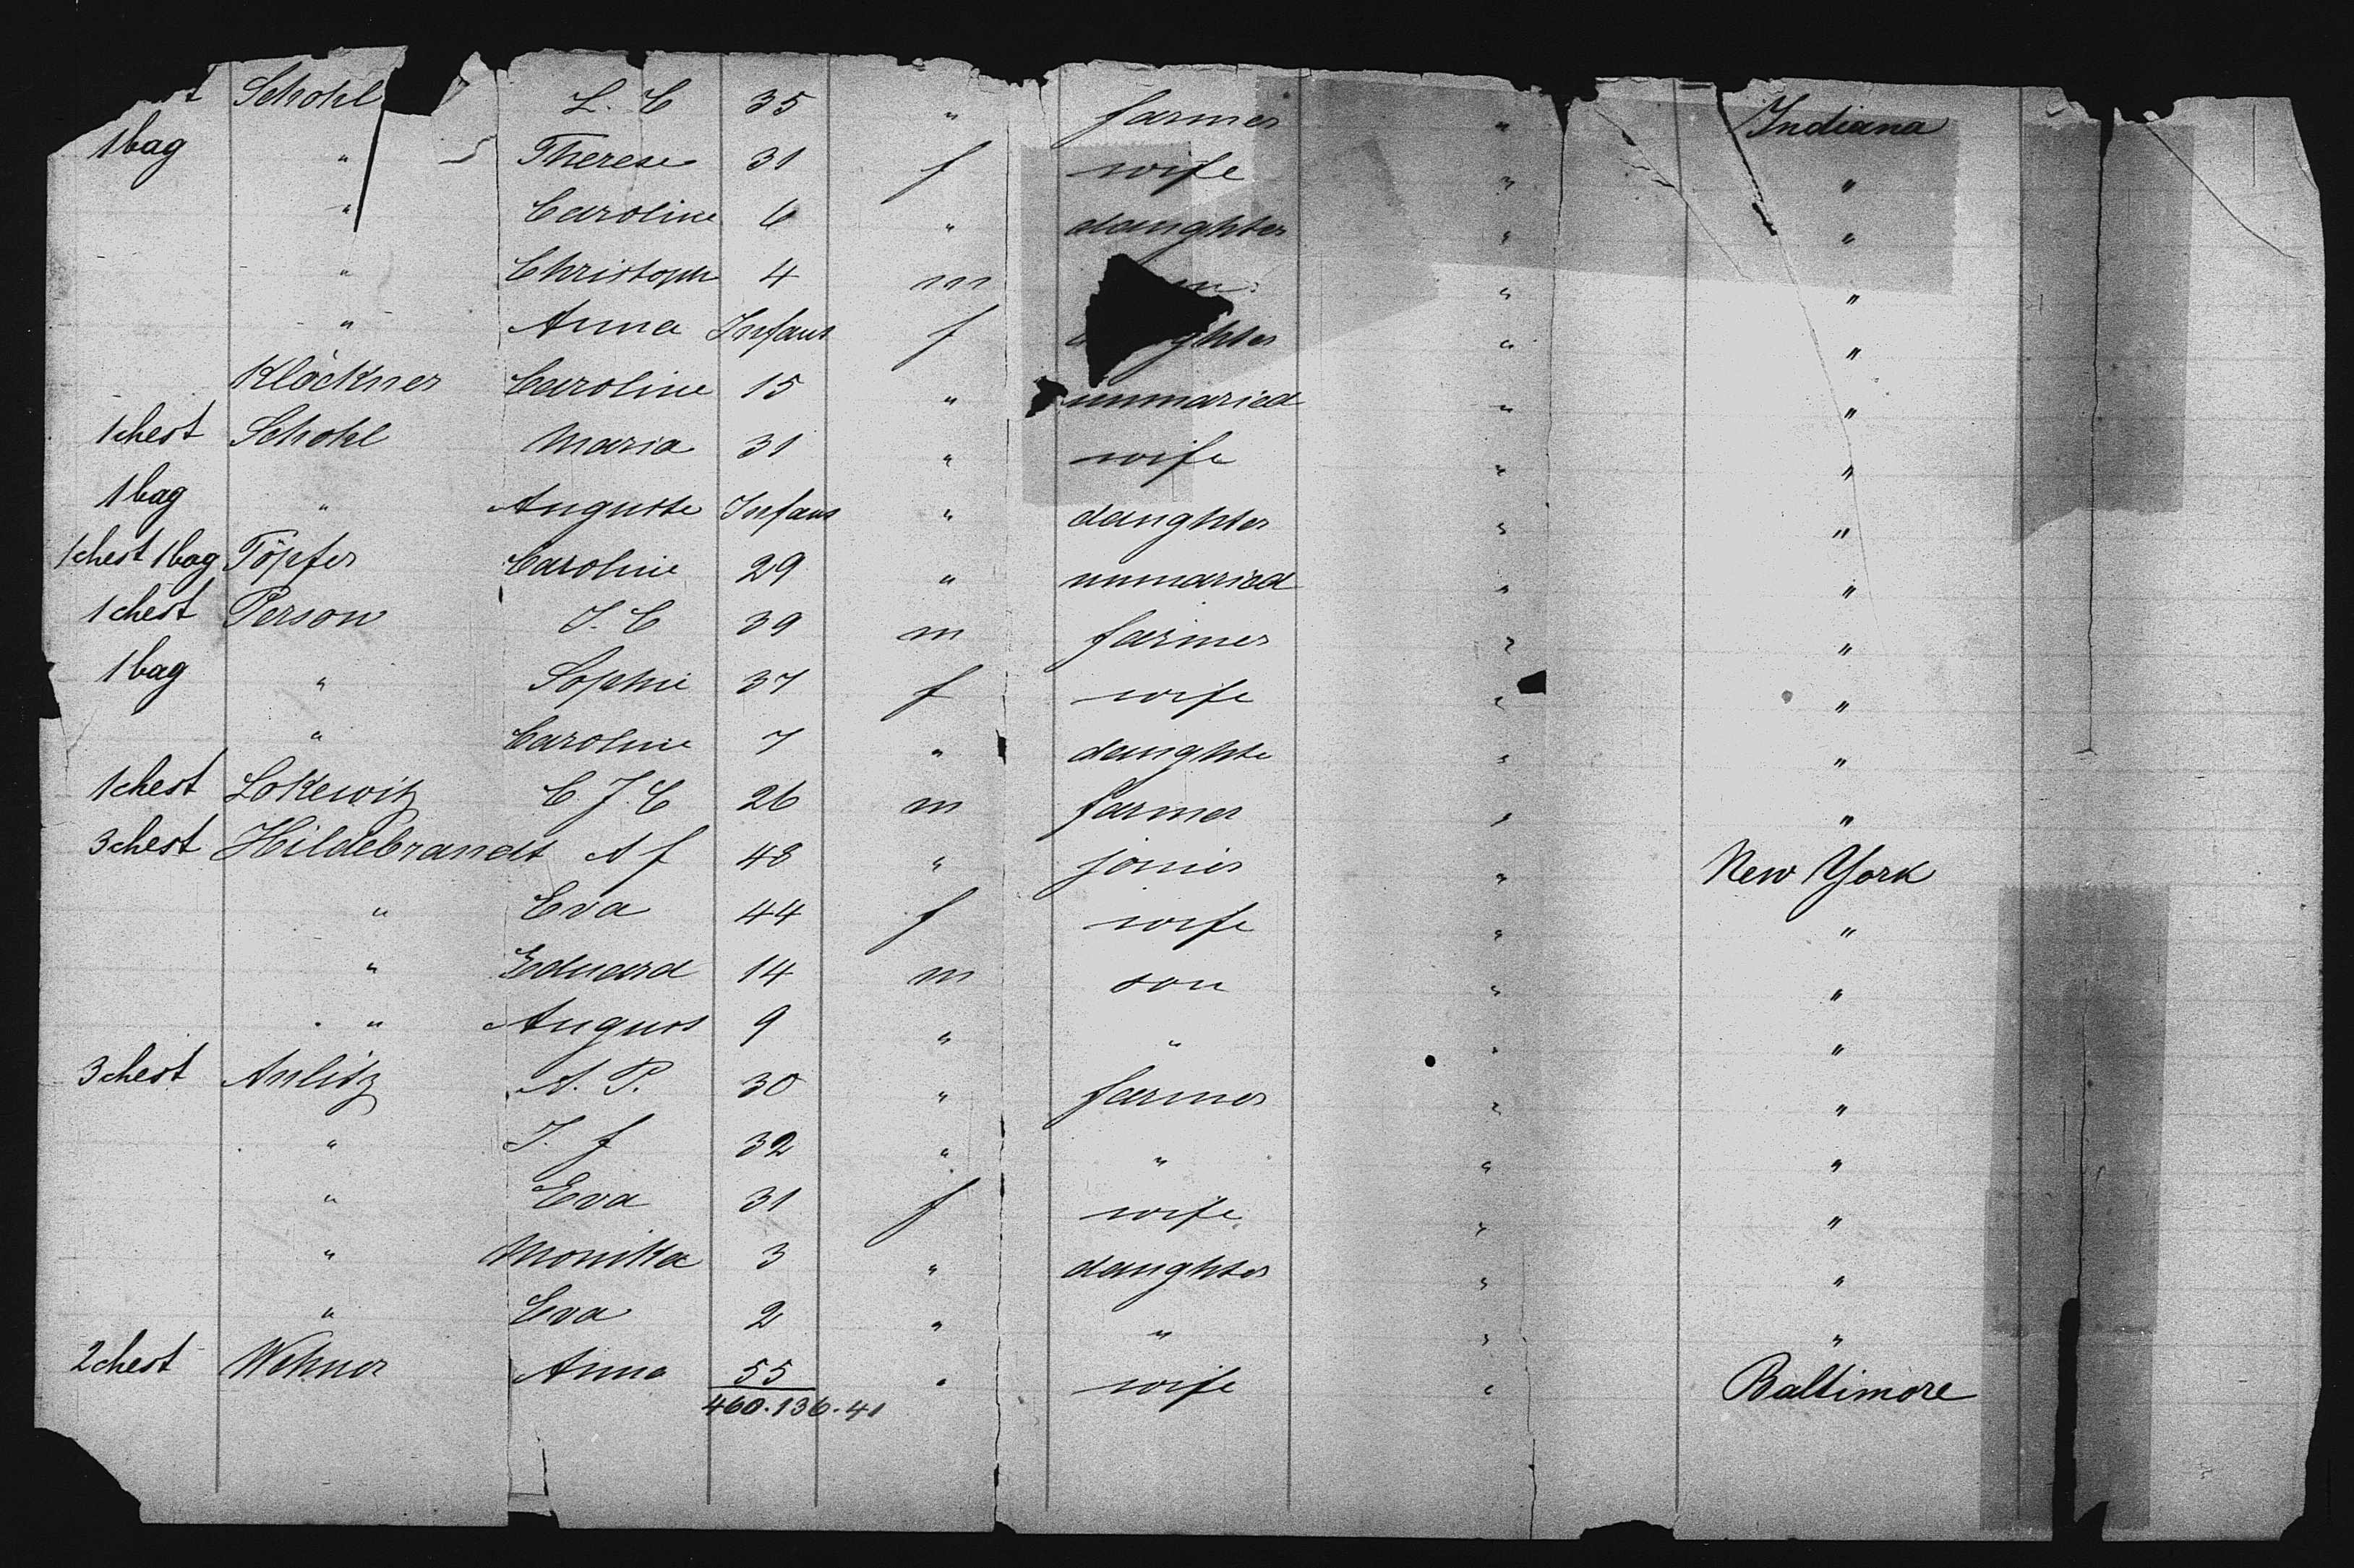 Schohl L. C 35 " farmer " Indiana
1 bag " Therese 31 f wife " "
" Caroline 6 " daughter " "
" Christoph 4 m " "
" Anna Infant f " "
Klöckner Caroline 15 " unmaried " "
1 chest Schohl Maria 31 " wife " "
1 bag " Auguste Infant " daughter " "
1 chest 1 bag Töpfer Caroline 29 " unmaried " "
1 chest Person J. C 39 m farmer " "
1 bag " Sophie 37 f wife " "
" Caroline 7 " daughte " "
1 chest Lokewitz C. J. C 26 m farmer " "
3 chest Hildebrandt A f 48 " joiner " New York
" Eva 44 f wife " "
" Eduard 14 m son " "
" August 9 " " " "
3 chest Anlitz A. P. 30 " farmer " "
" J. f 32 " " " "
" Eva 31 f wife " "
" Monika 3 " daughter " "
" Eva 2 " " " "
2 chest Wehner Anna 55 " wife " Baltimore
460 . 136 . 41